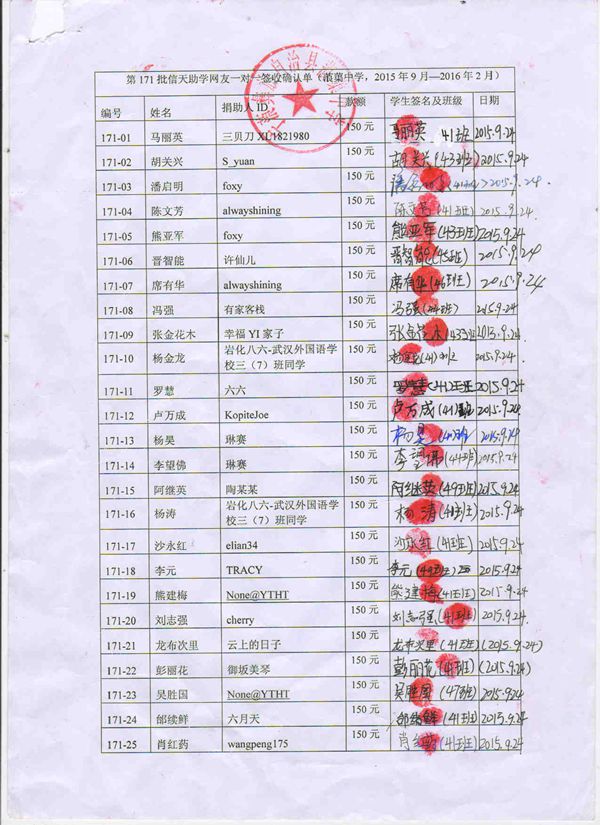 第 171 批信天助学网友一对一签收确认单（蒗蕖中学，2015 年 9 月—2016 年 2 月）
编号 姓名 捐助人 ID 款额 学生签名及班级 日期
171-01 马丽英 三贝刀 XL1821980 150 元 马丽英 41班 2015.9.24
171-02 胡关兴 S_yuan 150 元 胡关兴(43班) 2015.9.24
171-03 潘启明 foxy 150 元 2015.9.24
171-04 陈文芳 alwayshining 150 元 陈文芳(41班) 2015.9.24
171-05 熊亚军 foxy 150 元 熊亚军(43班) 2015.9.24
171-06 晋智能 许仙儿 150 元 晋智能 2015.9.24
171-07 席有华 alwayshining 150 元 席有华(46班) 2015.9.24
171-08 冯强 有家客栈 150 元 冯强 2015.9.24
171-09 张金花木 幸福 YI 家子 150 元 2015.9.24
171-10 杨金龙 岩化八六-武汉外国语学 150 元 2015.9.24
校三（7）班同学
171-11 罗慧 六六 150 元 (41班) 2015.9.24
171-12 卢万成 KopiteJoe 150 元 卢万成(41)班 2015.9.24
171-13 杨昊 琳赛 150 元 杨昊 2015.9.24
171-14 李望佛 琳赛 150 元 李望佛(44班) 2015.9.24
171-15 阿继英 陶某某 150 元 阿继英(49班) 2015.9.24
171-16 杨涛 岩化八六-武汉外国语学 150 元 杨涛 2015.9.24
校三（7）班同学
171-17 沙永红 elian34 150 元 沙永红(41班) 2015.9.24
171-18 李元 TRACY 150 元 李元 2015.9.24
171-19 熊建梅 None@YTHT 150 元 熊建梅(41班) 2015.9.24
171-20 刘志强 cherry 150 元 刘志强(41班) 2015.9.24
171-21 龙布次里 云上的日子 150 元 龙布次里(41班) (2015.9.24)
171-22 彭丽花 御坂美琴 150 元 彭丽花 (2015.9.24)
171-23 吴胜国 None@YTHT 150 元 吴胜国(47班) 2015.9.24
171-24 邰续鲜 六月天 150 元 (41班) 2015.9.24
171-25 肖红药 wangpeng175 150 元 肖红药(41班) 2015.9.24